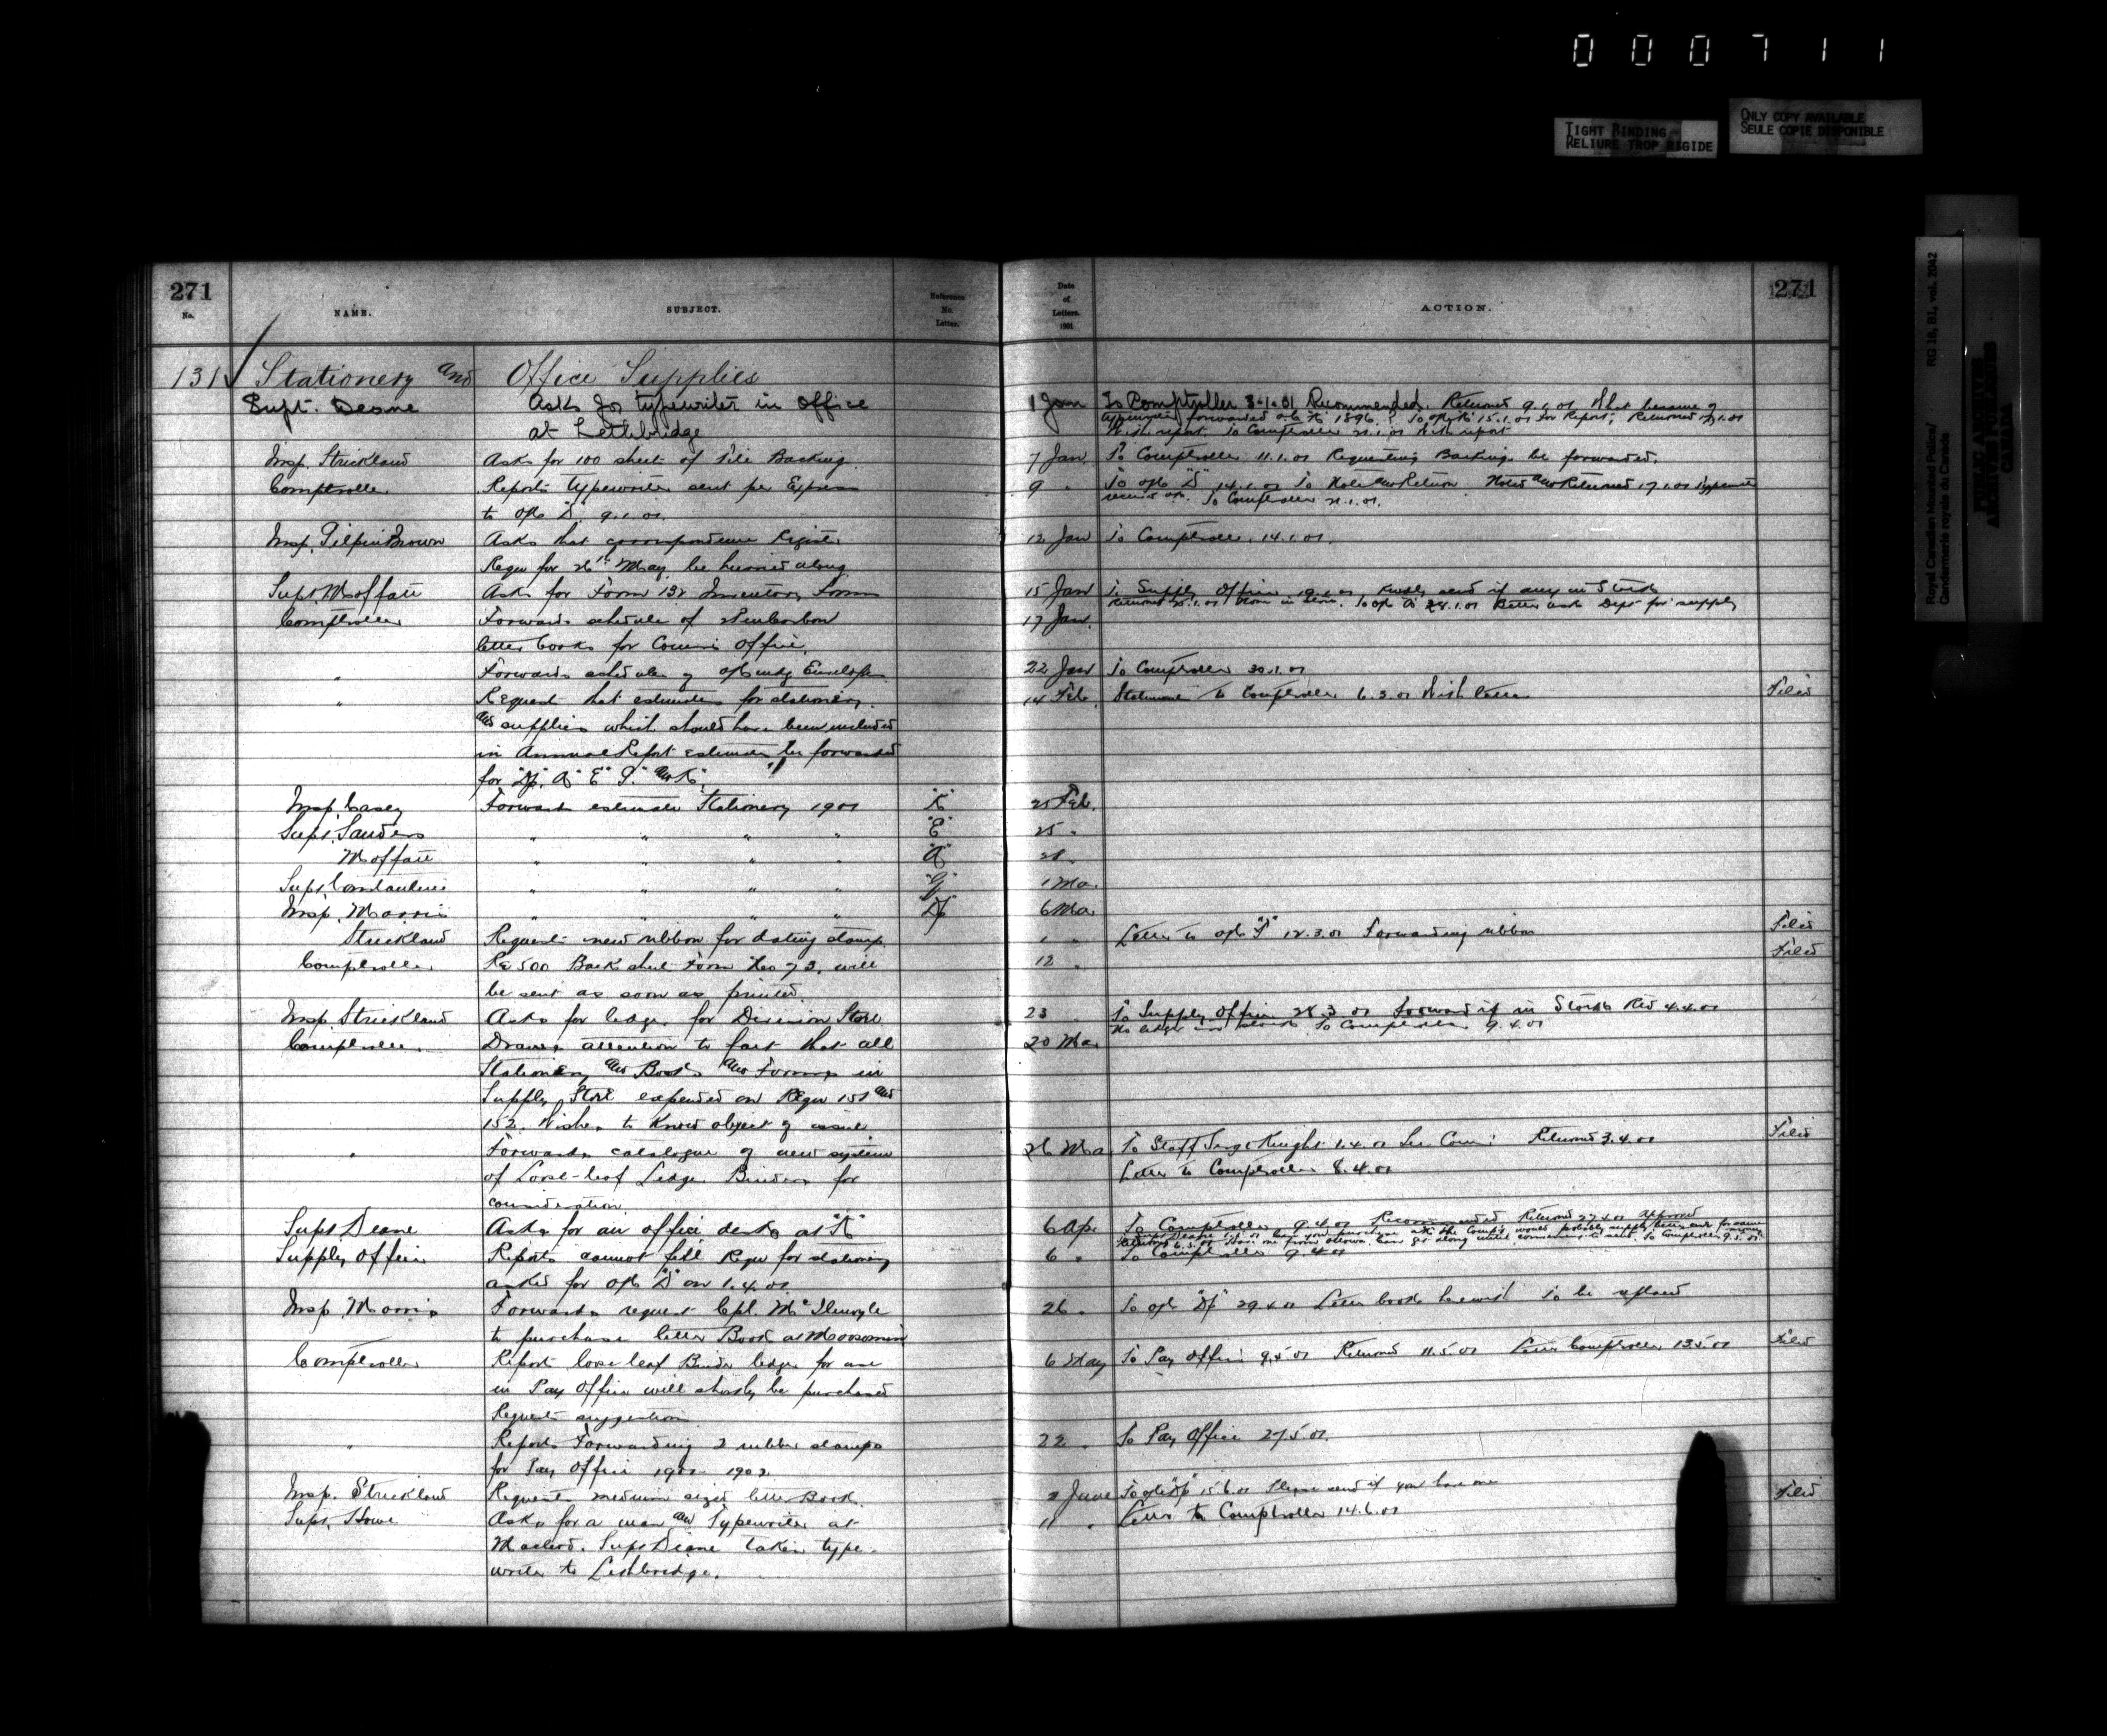 000711
TIGHT BINDING
RELIURE TROP RIGIDE
ONLY COPY AVAILABLE
SEULE COPIE DISPONIBLE
Royal Canadian Mounted Police/ RG 18, B1, vol. 2042
Gendarmerie royale du Canada
PUBLIC ARCHIVES
ARCHIVES PUBLIQUES
CANADA
271
No.
NAME.
SUBJECT.
Reference
No.
Letter.
131 Stationery and Office Supplies
Supt. Deane Asks for typewriter in office
at Lethbridge
Insp. Strickland Asks for 100 sheets of File Backing.
Comptroller Reports typewriter sent per Express
to 9.1.01.
Insp. Gilpin Brown Asks that correspondence Register
Reqn for 26th May be hurried along
Supt. Moffatt Asks for Form 132 Inventory Forms
Comptroller Forwards schedule of
letter books for Office.
" Forwards schedule of Envelopes
" Request that estimates for stationery
and supplies which should have been included
in Annual Report estimates be forwarded
for "A" "E"
Insp. Casey Forwards estimate Stationery 1901 "K" 25 Feb.
Supt. Sanders " " " " "E" 25 "
Moffatt " " " " "A"
Supt. Constantine " " " " "G" 1 Mar
Insp. Morris " " " " 6 Mar
Strickland Request new ribbon for dating stamp.
Comptroller Re 500 Back sheet Form No 73. will
be sent as soon as printed.
Insp. Strickland Asks for ledger for Division Store
Comptroller Draws attention to fact that all
Stationery and Books and Forms in
Supply Store expended on Reqn 151 and
152. Wishes to know object of issue.
" Forwards catalogue of new system
of Loose-leaf Ledger Binders for
consideration.
Supt Deane Asks for an office desk at "K"
Supply Officer Reports cannot fill Reqn for stationery
asked for on 1.4.01.
Insp. Morris Forwards request Cpl.
to purchase letter Book at Moosomin
Comptroller Reports loose leaf Binder ledger for use
in Pay Office will shortly be purchased
Request suggestion
" Reports Forwarding 2 rubber stamps
for Pay Office 1901-1902.
Insp. Strickland Request medium sized letter Book.
Supt. Howe Asks for a man and Typewriter at
Macleod. Supt Deane taken type-
writer to Lethbridge.
Date
of
Letters.
1901
ACTION.
271
1 Jan To Comptroller 3-1-01 Recommended. Returned 9.1.01 What became of
typewriter forwarded to "K" 1896.? To "K" 15.1.01 for Report; Returned
With report. To Comptroller 21.1.01 With report
7 Jan. To Comptroller 11.1.01 Requesting Backing be forwarded.
9 " To 14.1.01 To Note and Return Noted and Returned 17.1.01 Typewriter
To Comptroller 21.1.01.
12 Jan To Comptroller. 14.1.01.
15 Jan To Supply Officer Kindly send if any in Stock
None in Store. To Better ask Dept for supply
17 Jan.
22 Jan To Comptroller 30.1.01
14 Feb. Statement to Comptroller 6.3.01 With letter Filed
1 " Letter to 12.3.01 Forwarding ribbon Filed
12 " Filed
23 To Supply Officer 28.3.01 Forward if in Stock Red 4.4.01
No ledger in stock To Comptroller 9.4.01
20 Mar
26 Mar To Staff Sergt Knight 1.4.01 Returned 3.4.01 Filed
Letter to Comptroller 8.4.01
6 Apr. To Comptroller 9.4.01 Recommended Returned 27.4.01 approved
6 " To Comptroller 9.4.01
26 " To 29.4.01 Letter book herewith To be
6 May To Pay Officer 9.5.01 Returned 11.5.01 Letter Comptroller 13.5.01 Filed
22 " To Pay Office 27.5.01.
June 15.6.01 Please send if you have one Filed
11 " Letter to Comptroller 14.6.01